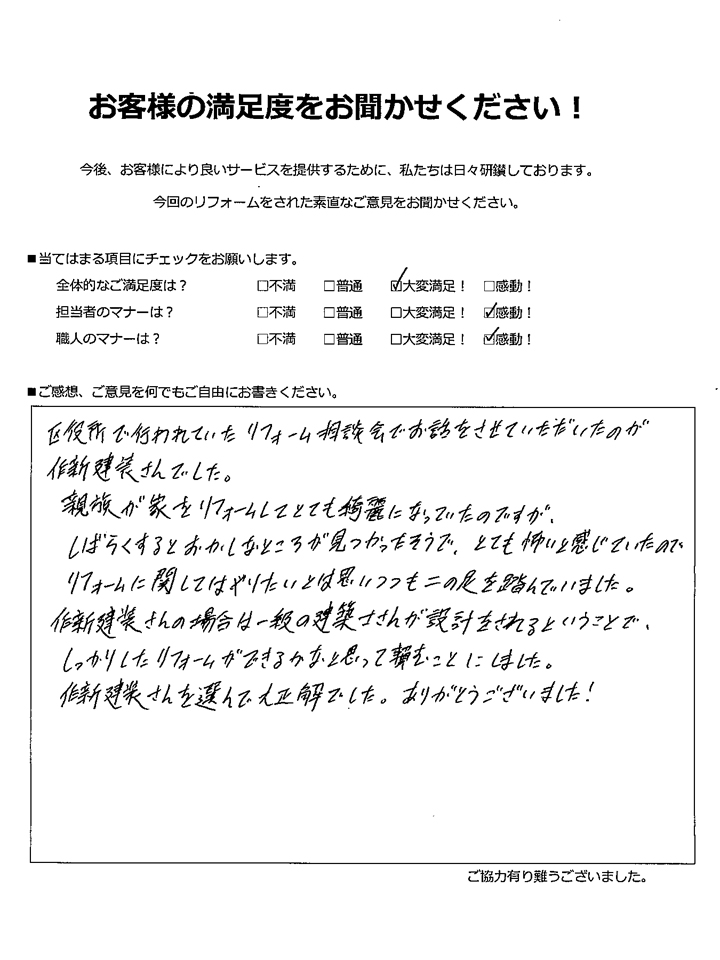 お客様の満足度をお聞かせください！
今後、お客様により良いサービスを提供するために、私たちは日々研鑽しております。
今回のリフォームをされた素直なご意見をお聞かせください。
■当てはまる項目にチェックをお願いします。
全体的なご満足度は？ □不満 □普通 ☑大変満足！ □感動！
担当者のマナーは？ □不満 □普通 □大変満足！ ☑感動！
職人のマナーは？ □不満 □普通 □大変満足！ ☑感動！
■ご感想、ご意見を何でもご自由にお書きください。
区役所で行われていたリフォーム相談会でお話をさせていただいたのが
作新建装さんでした。
親族が家をリフォームしてとても綺麗になっていたのですが、
しばらくするとおかしなところが見つかったそうで、とても怖いと感じていたので
リフォームに関してはやりたいとは思いつつも二の足を踏んでいました。
作新建装さんの場合は一級の建築士さんが設計をされるということで、
しっかりしたリフォームができるかなと思って頼むことにしました。
作新建装さんを選んで大正解でした。ありがとうございました！
ご協力有り難うございました。